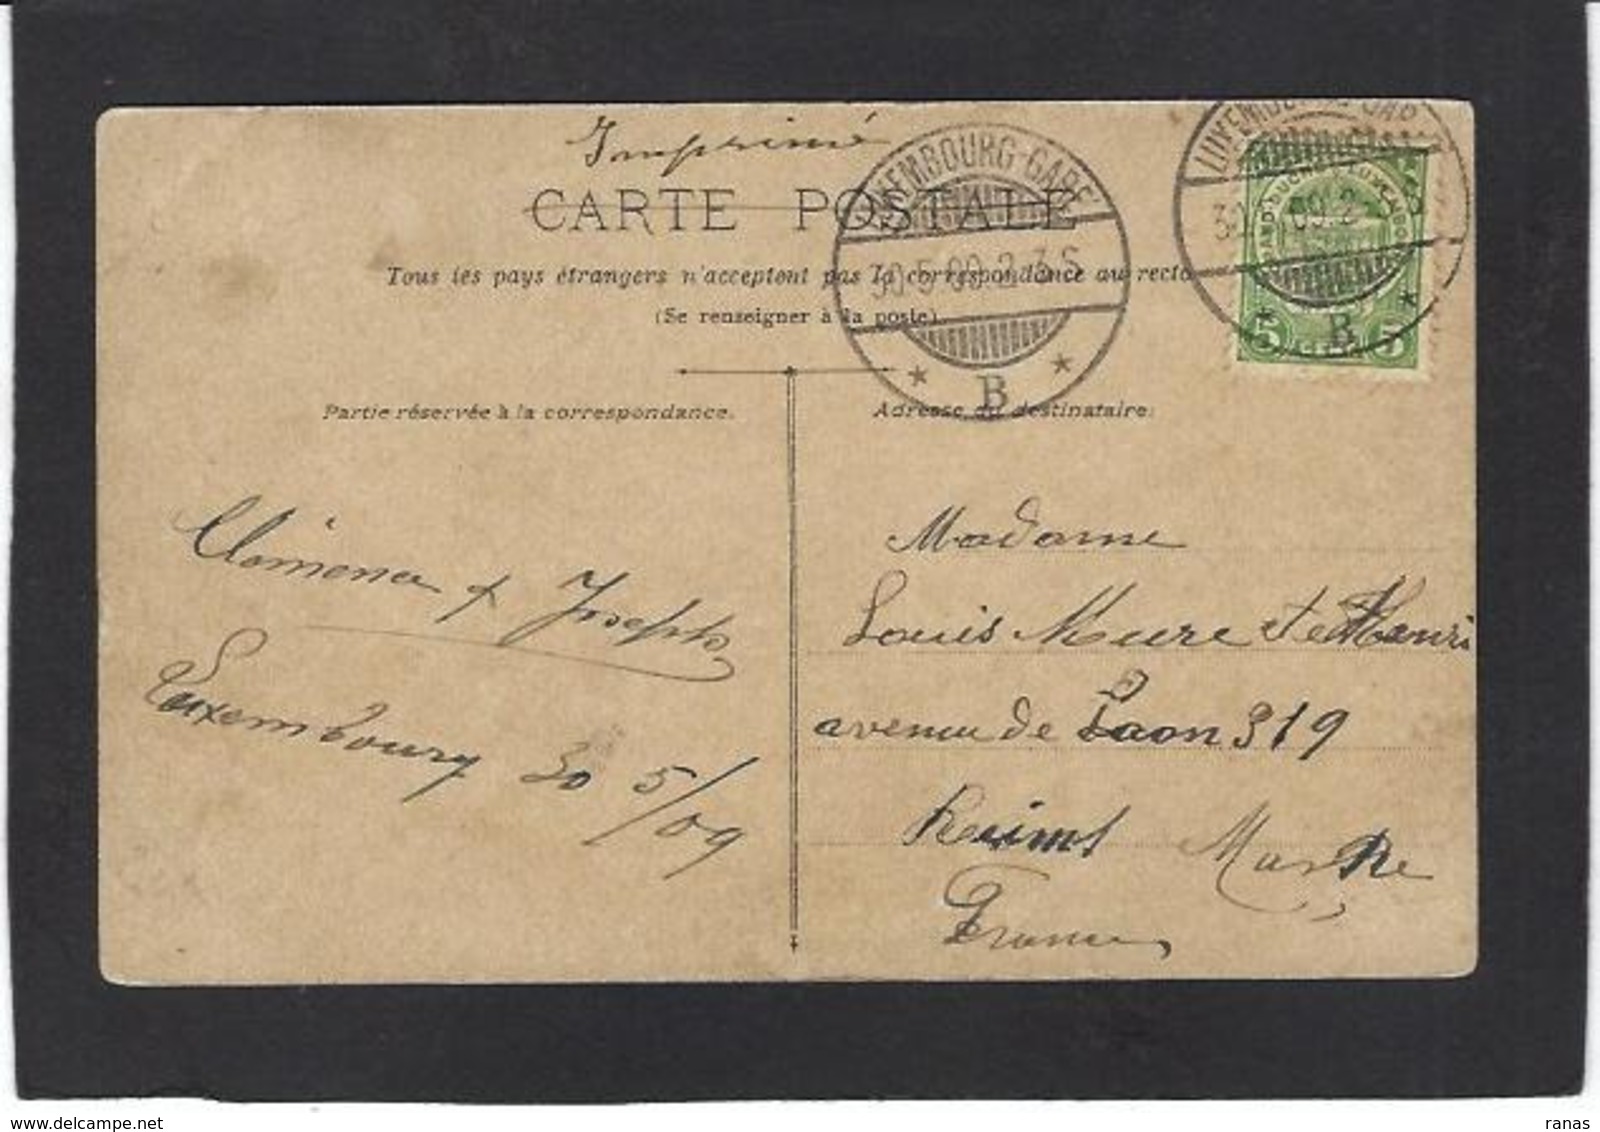 Imprimé
CARTE POSTALE
Tous les pays étrangers n'acceptent pas la correspondance au recto
(Se renseigner à la poste)
LUXEMBOURG-GARE
30.5.09. 2-3 S
B
LUXEMBOURG-GAR
GRAND-DUCHÉ DE LUXEMBOURG
5 5
B
Partie réservée à la correspondance.
Adresse du destinataire.
Clémence & Joseph
Luxembourg 30 5/09
Madame
Louis Mure Henri
avenue de Laon 319
Reims Marne
France
delcampe.net
ranas